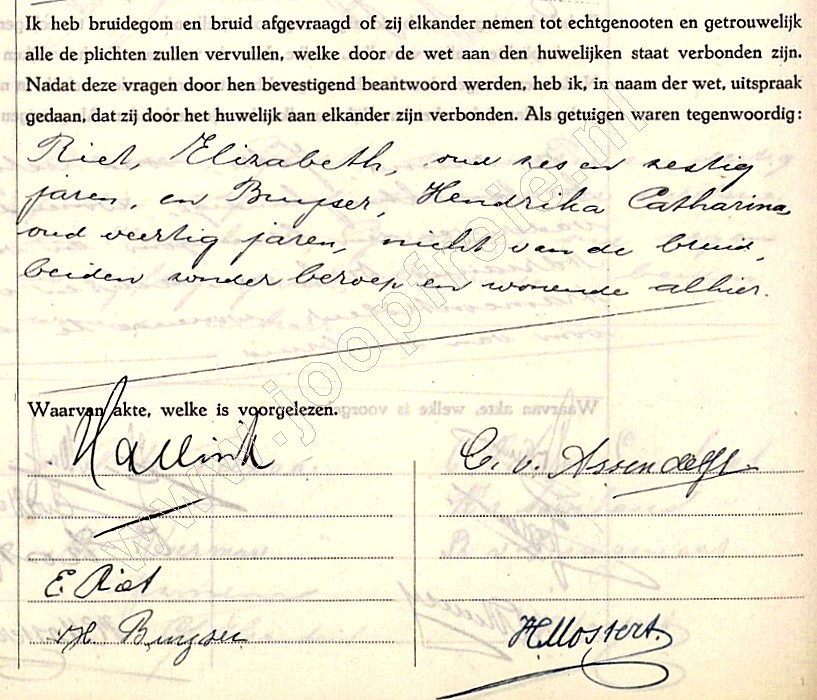 Ik heb bruidegom en bruid afgevraagd of zij elkander nemen tot echtgenooten en getrouwelijk
alle de plichten zullen vervullen, welke door de wet aan den huwelijken staat verbonden zijn.
Nadat deze vragen door hen bevestigend beantwoord werden, heb ik, in naam der wet, uitspraak
gedaan, dat zij door het huwelijk aan elkander zijn verbonden. Als getuigen waren tegenwoordig:
Riet, Elizabeth, oud zes en zestig
jaren, en Buijser, Hendrika Catharina,
oud veertig jaren, nicht van de bruid,
beiden zonder beroep en wonende alhier.
Waarvan akte, welke is voorgelezen.
C. v. Assendelft
E. Riet
H. Buijser
H. Mostert.
www.joopfroije.nl